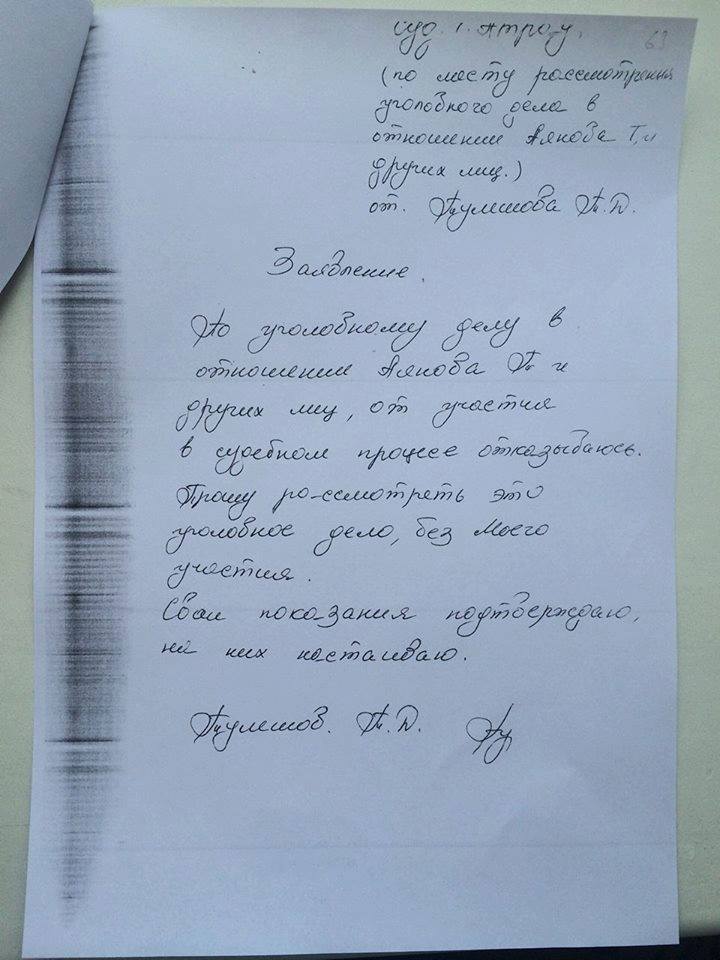 суд г. Атырау,
63
(по месту рассмотрения
уголовного дела в
отношении Аянова Т, и
других лиц.)
от. Тулешова Т. Д.
Заявление.
По уголовному делу в
отношении Аянова Т и
других лиц, от участия
в судебном процессе отказываюсь.
Прошу ра-ссмотреть это
уголовное дело, без моего
участия.
Свои показания подтверждаю,
на них настаиваю.
Тулешов. Т. Д.